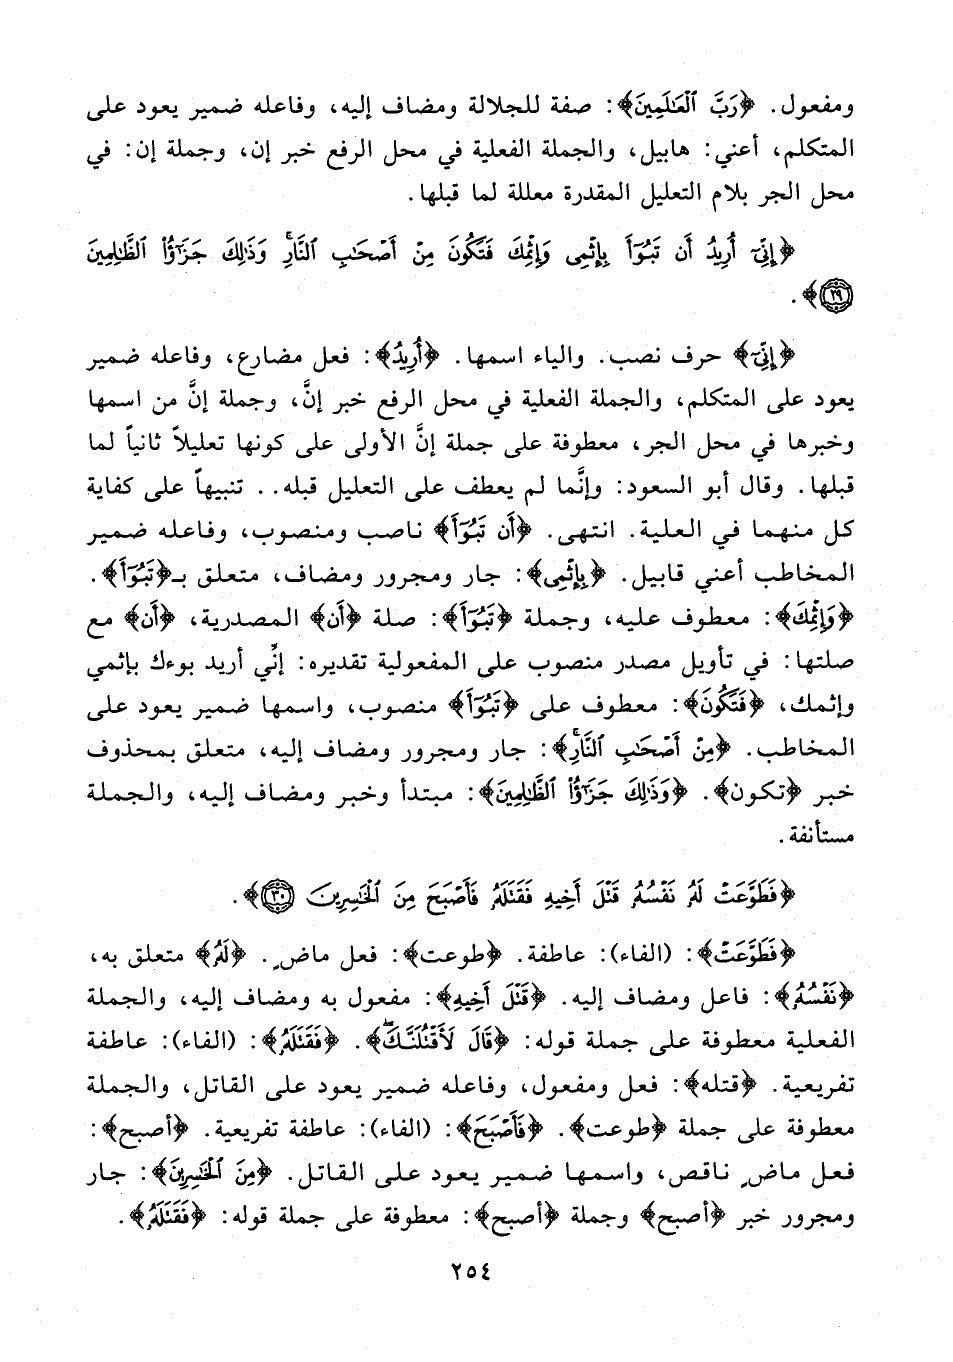 ومفعول. ﴿رَبَّ ٱلْعَٰلَمِينَ﴾: صفة للجلالة ومضاف إليه، وفاعله ضمير يعود على
المتكلم، أعني: هابيل، والجملة الفعلية في محل الرفع خبر إن، وجملة إن: في
محل الجر بلام التعليل المقدرة معللة لما قبلها.
﴿إِنِّىٓ أُرِيدُ أَن تَبُوٓأَ بِإِثْمِى وَإِثْمِكَ فَتَكُونَ مِنْ أَصْحَٰبِ ٱلنَّارِۚ وَذَٰلِكَ جَزَٰٓؤُا۟ ٱلظَّٰلِمِينَ
٢٩﴾.
﴿إِنِّىٓ﴾ حرف نصب. والياء اسمها. ﴿أُرِيدُ﴾: فعل مضارع، وفاعله ضمير
يعود على المتكلم، والجملة الفعلية في محل الرفع خبر إنَّ، وجملة إنَّ من اسمها
وخبرها في محل الجر، معطوفة على جملة إنَّ الأولى على كونها تعليلاً ثانياً لما
قبلها. وقال أبو السعود: وإنَّما لم يعطف على التعليل قبله.. تنبيهاً على كفاية
كل منهما في العلية. انتهى. ﴿أَن تَبُوٓأَ﴾ ناصب ومنصوب، وفاعله ضمير
المخاطب أعني قابيل. ﴿بِإِثْمِى﴾: جار ومجرور ومضاف، متعلق بـ﴿تَبُوٓأَ﴾.
﴿وَإِثْمِكَ﴾: معطوف عليه، وجملة ﴿تَبُوٓأَ﴾: صلة ﴿أن﴾ المصدرية، ﴿أن﴾ مع
صلتها: في تأويل مصدر منصوب على المفعولية تقديره: إنِّي أريد بوءك بإثمي
وإثمك، ﴿فَتَكُونَ﴾: معطوف على ﴿تَبُوٓأَ﴾ منصوب، واسمها ضمير يعود على
المخاطب. ﴿مِنْ أَصْحَٰبِ ٱلنَّارِۚ﴾: جار ومجرور ومضاف إليه، متعلق بمحذوف
خبر ﴿تكون﴾. ﴿وَذَٰلِكَ جَزَٰٓؤُا۟ ٱلظَّٰلِمِينَ﴾: مبتدأ وخبر ومضاف إليه، والجملة
مستأنفة.
﴿فَطَوَّعَتْ لَهُۥ نَفْسُهُۥ قَتْلَ أَخِيهِ فَقَتَلَهُۥ فَأَصْبَحَ مِنَ ٱلْخَٰسِرِينَ ٣٠﴾.
﴿فَطَوَّعَتْ﴾: (الفاء): عاطفة. ﴿طوعت﴾: فعل ماضٍ. ﴿لَهُۥ﴾ متعلق به،
﴿نَفْسُهُۥ﴾: فاعل ومضاف إليه. ﴿قَتْلَ أَخِيهِ﴾: مفعول به ومضاف إليه، والجملة
الفعلية معطوفة على جملة قوله: ﴿قَالَ لَأَقْتُلَنَّكَۖ﴾. ﴿فَقَتَلَهُۥ﴾: (الفاء): عاطفة
تفريعية. ﴿قتله﴾: فعل ومفعول، وفاعله ضمير يعود على القاتل، والجملة
معطوفة على جملة ﴿طوعت﴾. ﴿فَأَصْبَحَ﴾: (الفاء): عاطفة تفريعية. ﴿أصبح﴾:
فعل ماضٍ ناقص، واسمها ضمير يعود على القاتل. ﴿مِنَ ٱلْخَٰسِرِينَ﴾: جار
ومجرور خبر ﴿أصبح﴾ وجملة ﴿أصبح﴾: معطوفة على جملة قوله: ﴿فَقَتَلَهُۥ﴾.
٢٥٤